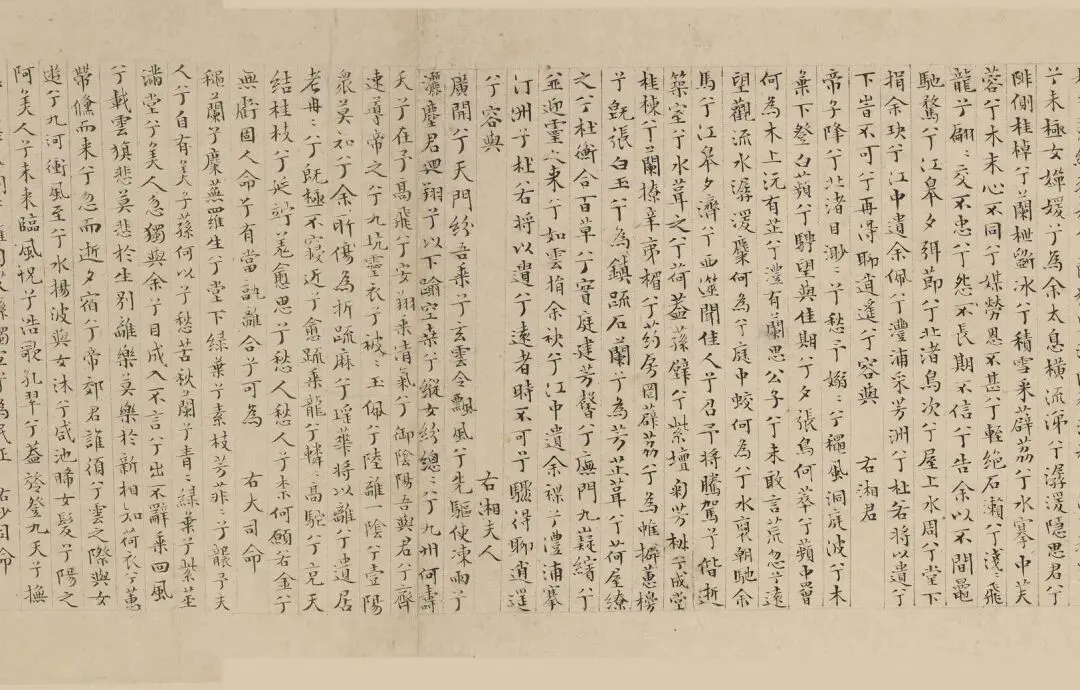 兮未極女嬋媛兮為余太息橫流涕兮潺湲隱思君兮
陫側桂棹兮蘭枻斲冰兮積雪采薜荔兮水搴中芙
蓉兮木末心不同兮媒勞恩不甚兮輕絕石瀨兮淺〻飛
龍兮翩〻交不忠兮怨不長期不信兮告余以不間鼂
馳騖兮江皋夕弭節兮北渚鳥次兮屋上水周兮堂下
捐余玦兮江中遺余佩兮澧浦采芳洲兮杜若將以遺兮
下旹不可兮再得聊逍遙兮容與 右湘君
帝子降兮北渚目渺〻兮愁予嫋〻兮穐風洞庭波兮木
葉下登白蘋兮騁望與佳期兮夕張鳥何萃兮蘋中罾
何為木上沅有芷兮澧有蘭思公子兮未敢言荒忽兮遠
望觀流水潺湲麋何為兮庭中蛟何為兮水裔朝馳余
馬兮江皋夕濟兮西澨聞佳人兮召予將騰駕兮偕逝
築室兮水葺之兮荷蓋蓀壁兮紫壇匊芳椒兮成堂
桂棟兮蘭橑辛夷楣兮药房罔薜荔兮為帷擗蕙櫋
兮既張白玉兮為鎮疏石蘭兮為芳芷葺兮荷屋繚
之兮杜衡合百草兮實庭建芳馨兮廡門九嶷繽兮
並迎靈之來兮如雲捐余袂兮江中遺余褋兮澧浦搴
汀洲兮杜若將以遺兮遠者時不可兮驟得聊逍遙
兮容與 右湘夫人
廣開兮天門紛吾乘兮玄雲令飄風兮先驅使涷雨兮
灑塵君迴翔兮以下踰空桑兮縱女紛總〻兮九州何壽
夭兮在予高飛兮安翔乘清氣兮御陰陽吾與君兮齊
速導帝之兮九坑靈衣兮被〻玉佩兮陸離一陰兮壹陽
眾莫知兮余所傷為折疏麻兮瑤華將以離兮遺居
老冉〻兮既極不寖近兮愈疏乘龍兮轔〻高駝兮天
結桂枝兮延竚羌愈思兮愁人愁人兮柰何願若金兮
無虧固人命兮有當孰離合兮可為 右大司命
穐蘭兮麋蕪羅生兮堂下綠葉兮素枝芳菲〻兮襲予夫
人兮自有美子蓀何以兮愁苦秋蘭兮青〻綠葉兮紫莖
滿堂兮美人忽獨與余兮目成入不言兮出不辭乘回風
兮載雲旗悲莫悲於生別離樂莫樂於新相知荷衣兮蕙
帶儵而來兮忽而逝夕宿兮帝郊君誰須兮雲之際與女
遊兮九河衝風至兮水揚波與女沐兮咸池晞女髮兮陽之
阿美人兮未來臨風怳兮浩歌孔翠兮蓋旍登九天兮撫
右少司命